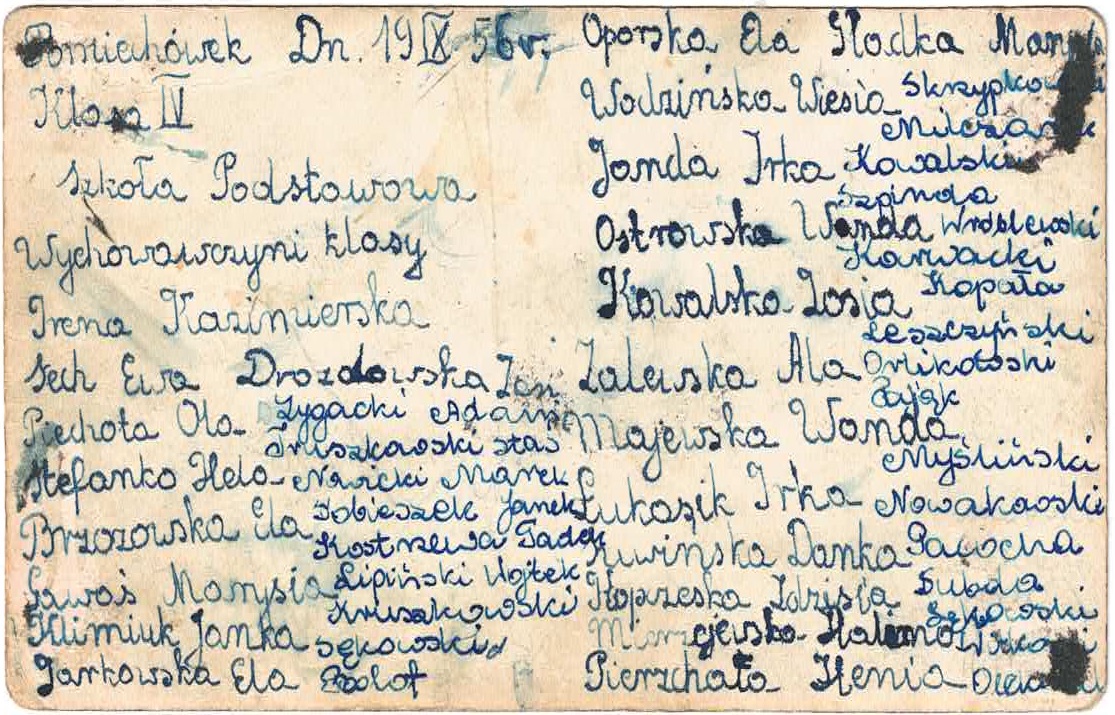 Pomiechówek Dn. 19 IX 56r.
Klasa IV
Szkoła Podstawowa
Wychowawczyni klasy
Irena Kazimierska
Sech Ewa Drozdowska
Piechota Ola
Zygacki Adam
Truszkowski Staś
Stefanko Hela
Nawicki Marek
Sobieszek Janek
Brzozowska Ela
Kostrzewa Tadek
Gawoś Marysia
Lipiński Wojtek
Kruszkowski
Klimiuk Janka
Sękowski
Jarkowska Ela Bolot
Oporska Ela Hadka
Wodzińska Wiesia
Milczarek
Janda Irka Kowalski
Szpinda
Ostrowska Wanda Wróblewski
Karwacki
Kowalska Zosia Kopała
Leszczyński
Zalewska Ala Omikołoski
Zając
Majewska Wanda
Myśliński
Łukasik Irka Nowakowski
Kuwińska Danka Pacocha
Koprzeska Zdzisia Dubda
Sękowski
Halina
Pierzchała Henia